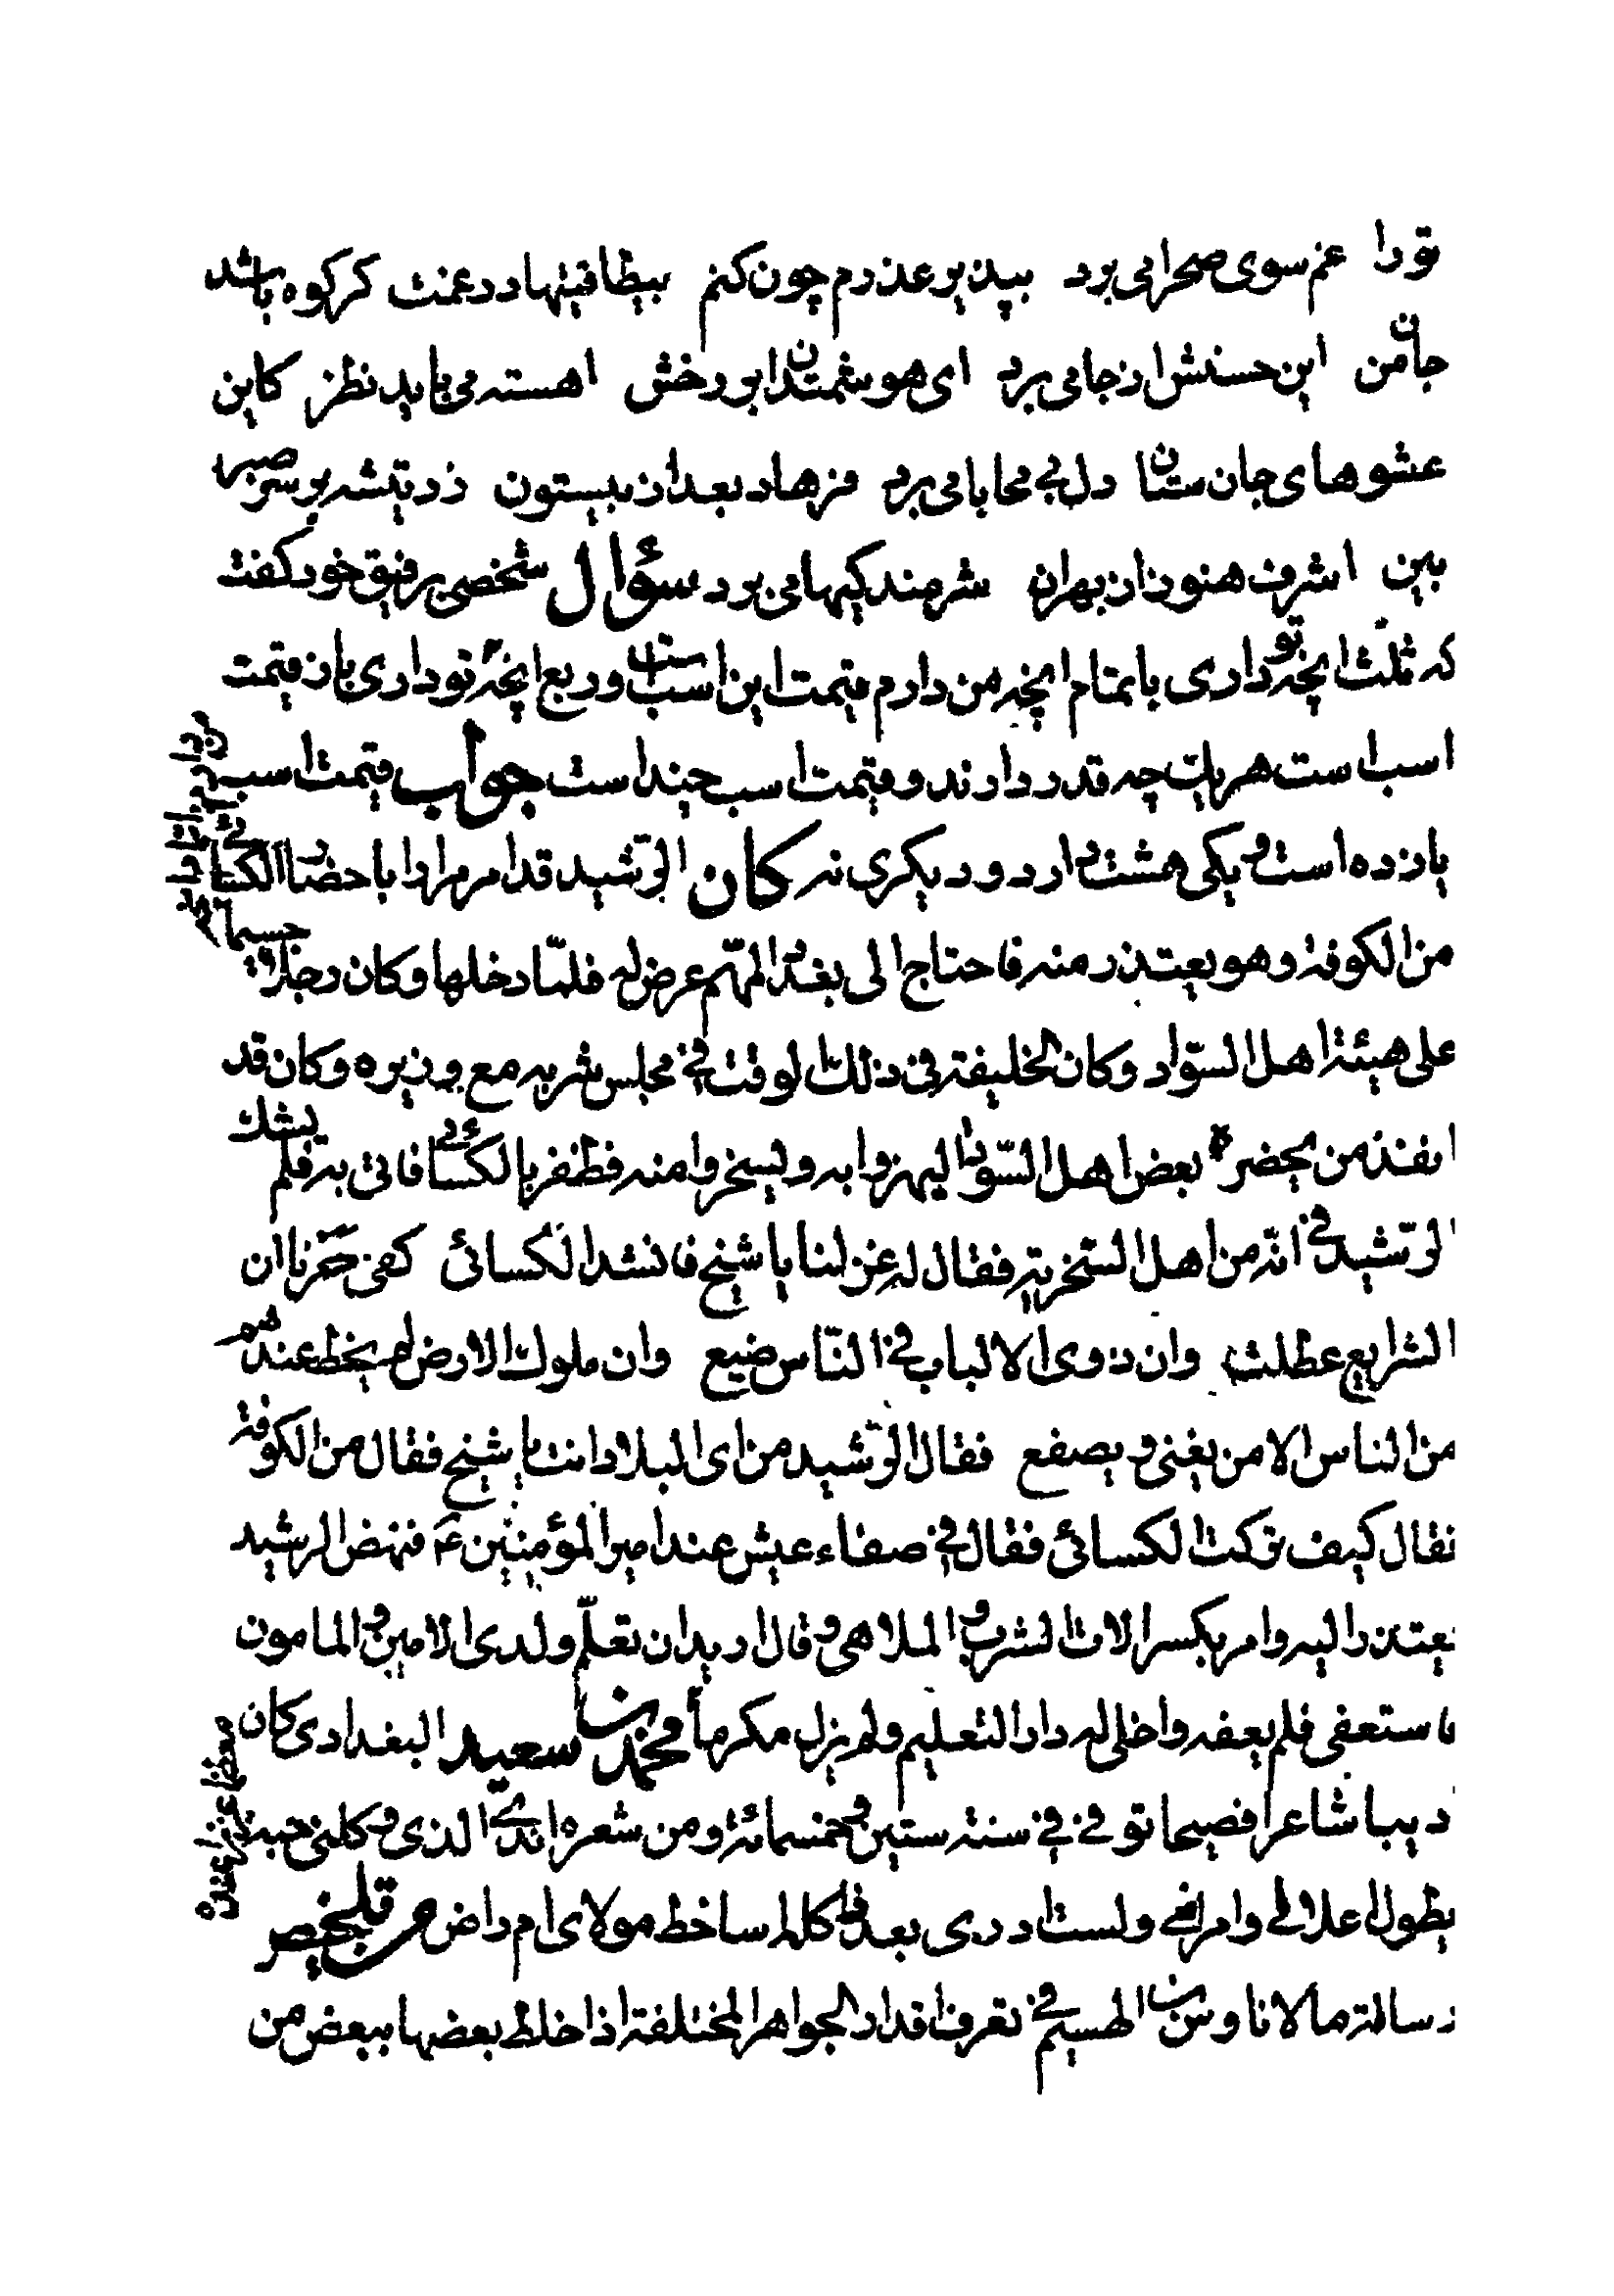 تو را غم سوی صحرا می برد بپذیر عذرم چون کنم بیطاقتیها در غمت کر کوه باشد
جان من این حسنش از جا می برد ای هوشمندان بر رخش اهسته می باید نظر کاین
عشوهای جان ستان دل بی محابا می برد فرهاد بعد از بیستون زد تیشه بر سر صبر
بین اشرف هنوز از بهر ان شرمندکیها می برد سؤال شخصی برفیق خود کفت
که ثلث انچه تو داری با تمام انچه من دارم قیمت این اسب است و ربع انچه تو داری باز قیمت
اسب است هریک چه قدر دارند و قیمت اسب چند است جواب قیمت اسب
یازده است و یکی هشت دارد و دیکری نه کان الرّشید قد امر مرارا باحضار الکسائی
من الکوفة وهو یعتذر منه فاحتاج الی بغداد لمهّم عرض له فلمّا دخلها وکان رجلا
علی هیئة اهل السّواد وکان الخلیفة فی ذلک الوقت فی مجلس شربه مع وزیره وکان قد
انفذ من یحضره بعض اهل السّواد لیهزوا به ولیسخروا منه فظفر بالکسائی فاتی به فلم یشك
الرّشید فی انّه من اهل السّخریّة فقال له غن لنا یا شیخ فانشد الکسائی کفی حزنا ان
الشرایع عطلت وان ذوی الالباب فی النّاس ضیع وان ملوک الارض لم یحظ عندهم
من الناس الا من یغنی و یصفع فقال الرّشید من ای البلاد انت یا شیخ فقال من الکوفة
فقال کیف ترکت الکسائی فقال فی صفاء عیش عند امیر المؤمنین فنهض الرشید
یعتذر الیه وامر بکسر الات الشرب و الملاهی و قال ارید ان تعلّم ولدی الامین و المامون
فاستعفی فلم یعفه واخلی له دار التعلیم ولم یزل مکرما محمّد بن سعید البغدادی کان
ادیبا شاعرا فصیحا توفی فی سنة ستین و خمسمائة ومن شعره افدی الذی وکلنی حبه
بطول اعلالی وامراضی ولست ادری بعد ذا کله اساخط مولای ام راض من تلخیص
رسالة مالاناوس الی طیس فی تعرف اقدار الجواهر المختلفة اذا خلط بعضها ببعض من